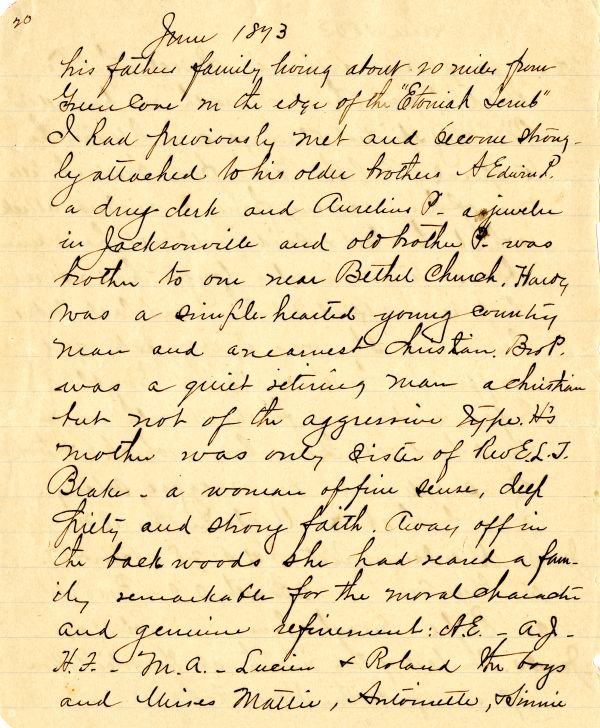 20
June 1873
his fathers family living about 20 miles from
Green Cove in the edge of the "Etoniah Scrub"
I had previously met and become strong-
ly attached to his older brothers A Edwin P.
a drug clerk and Aurelius P- a jeweler
in Jacksonville and old brother P- was
brother to one near Bethel Church. Hardy
was a simple-hearted young country
man and an earnest christian. Bro P.
was a quiet retiring man a christian
but not of the aggressive type. H's
mother was only sister of Rev E. L. T.
Blake - a woman of fine sense, deep
piety and strong faith. Away off in
the back woods she had reared a fam-
ily remarkable for the moral character
and genuine refinement: A.E. - A.J. -
H. F. - M. A. - Lucien & Roland the boys
and Misses Mattie, Antoinette, &